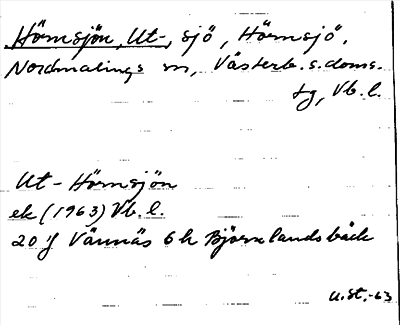 Hörnsjön, Ut-, sjö, Hörnsjö,
Nordmalings sn, Västerb. s. doms.
tg, Vb. l.
Ut-Hörnsjön
ek (1963) Vb. l.
20 J Vännäs 6 h Björnlandsbäck
U.St.-63